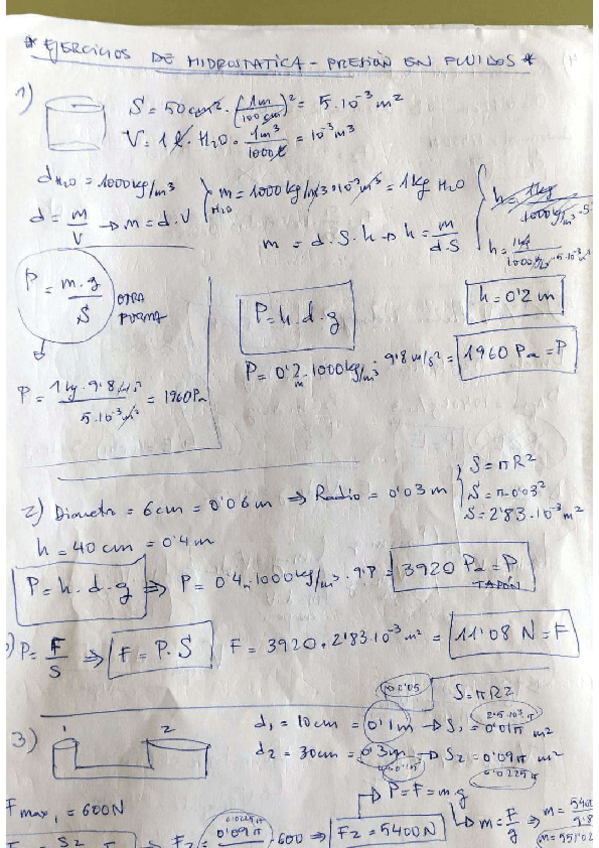 * EJERCICIOS DE HIDROSTATICA - PRESION EN FLUIDOS *
1)
S = 50 cm² · (1m / 100 cm)² = 5·10⁻³ m²
V = 1 ℓ · H₂O · 1m³ / 1000 ℓ = 10⁻³ m³
d H₂O = 1000 kg/m³
m H₂O = 1000 kg/m³ · 10⁻³ m³ = 1 kg H₂O
d = m/V → m = d·V
m = d·S·h → h = m / d·S
h = 1kg / 1000 kg/m³ · S
h = 1kg / 1000 kg/m³ · 5·10⁻³ m²
h = 0'2 m
P = m·g / S
OTRA FORMA
P = h·d·g
P = 0'2 m · 1000 kg/m³ · 9'8 m/s² = 1960 Pa = P
P = 1 kg · 9'8 m/s² / 5·10⁻³ m² = 1960 Pa
2) Diametro = 6cm = 0'06 m ⇒ Radio = 0'03 m
S = πR²
S = π·0'03²
S = 2'83·10⁻³ m²
h = 40 cm = 0'4 m
P = h·d·g ⇒ P = 0'4 · 1000 kg/m³ · 9'8 = 3920 Pa = P
TAPÓN
) P = F/S ⇒ F = P·S F = 3920 · 2'83·10⁻³ m² = 11'08 N = F
S = πR²
3)
1 2
d₁ = 10cm = 0'1m → S₁ = 0'01π m²
2'5·10⁻³·π
d₂ = 30cm = 0'3m → S₂ = 0'09π m²
0'0225π
P = F = m·g
F max₁ = 600N
0'0225π
F₂ = 0'09π · 600 ⇒ F₂ = 5400 N
m = F/g ⇒ m = 5400 / 9'8